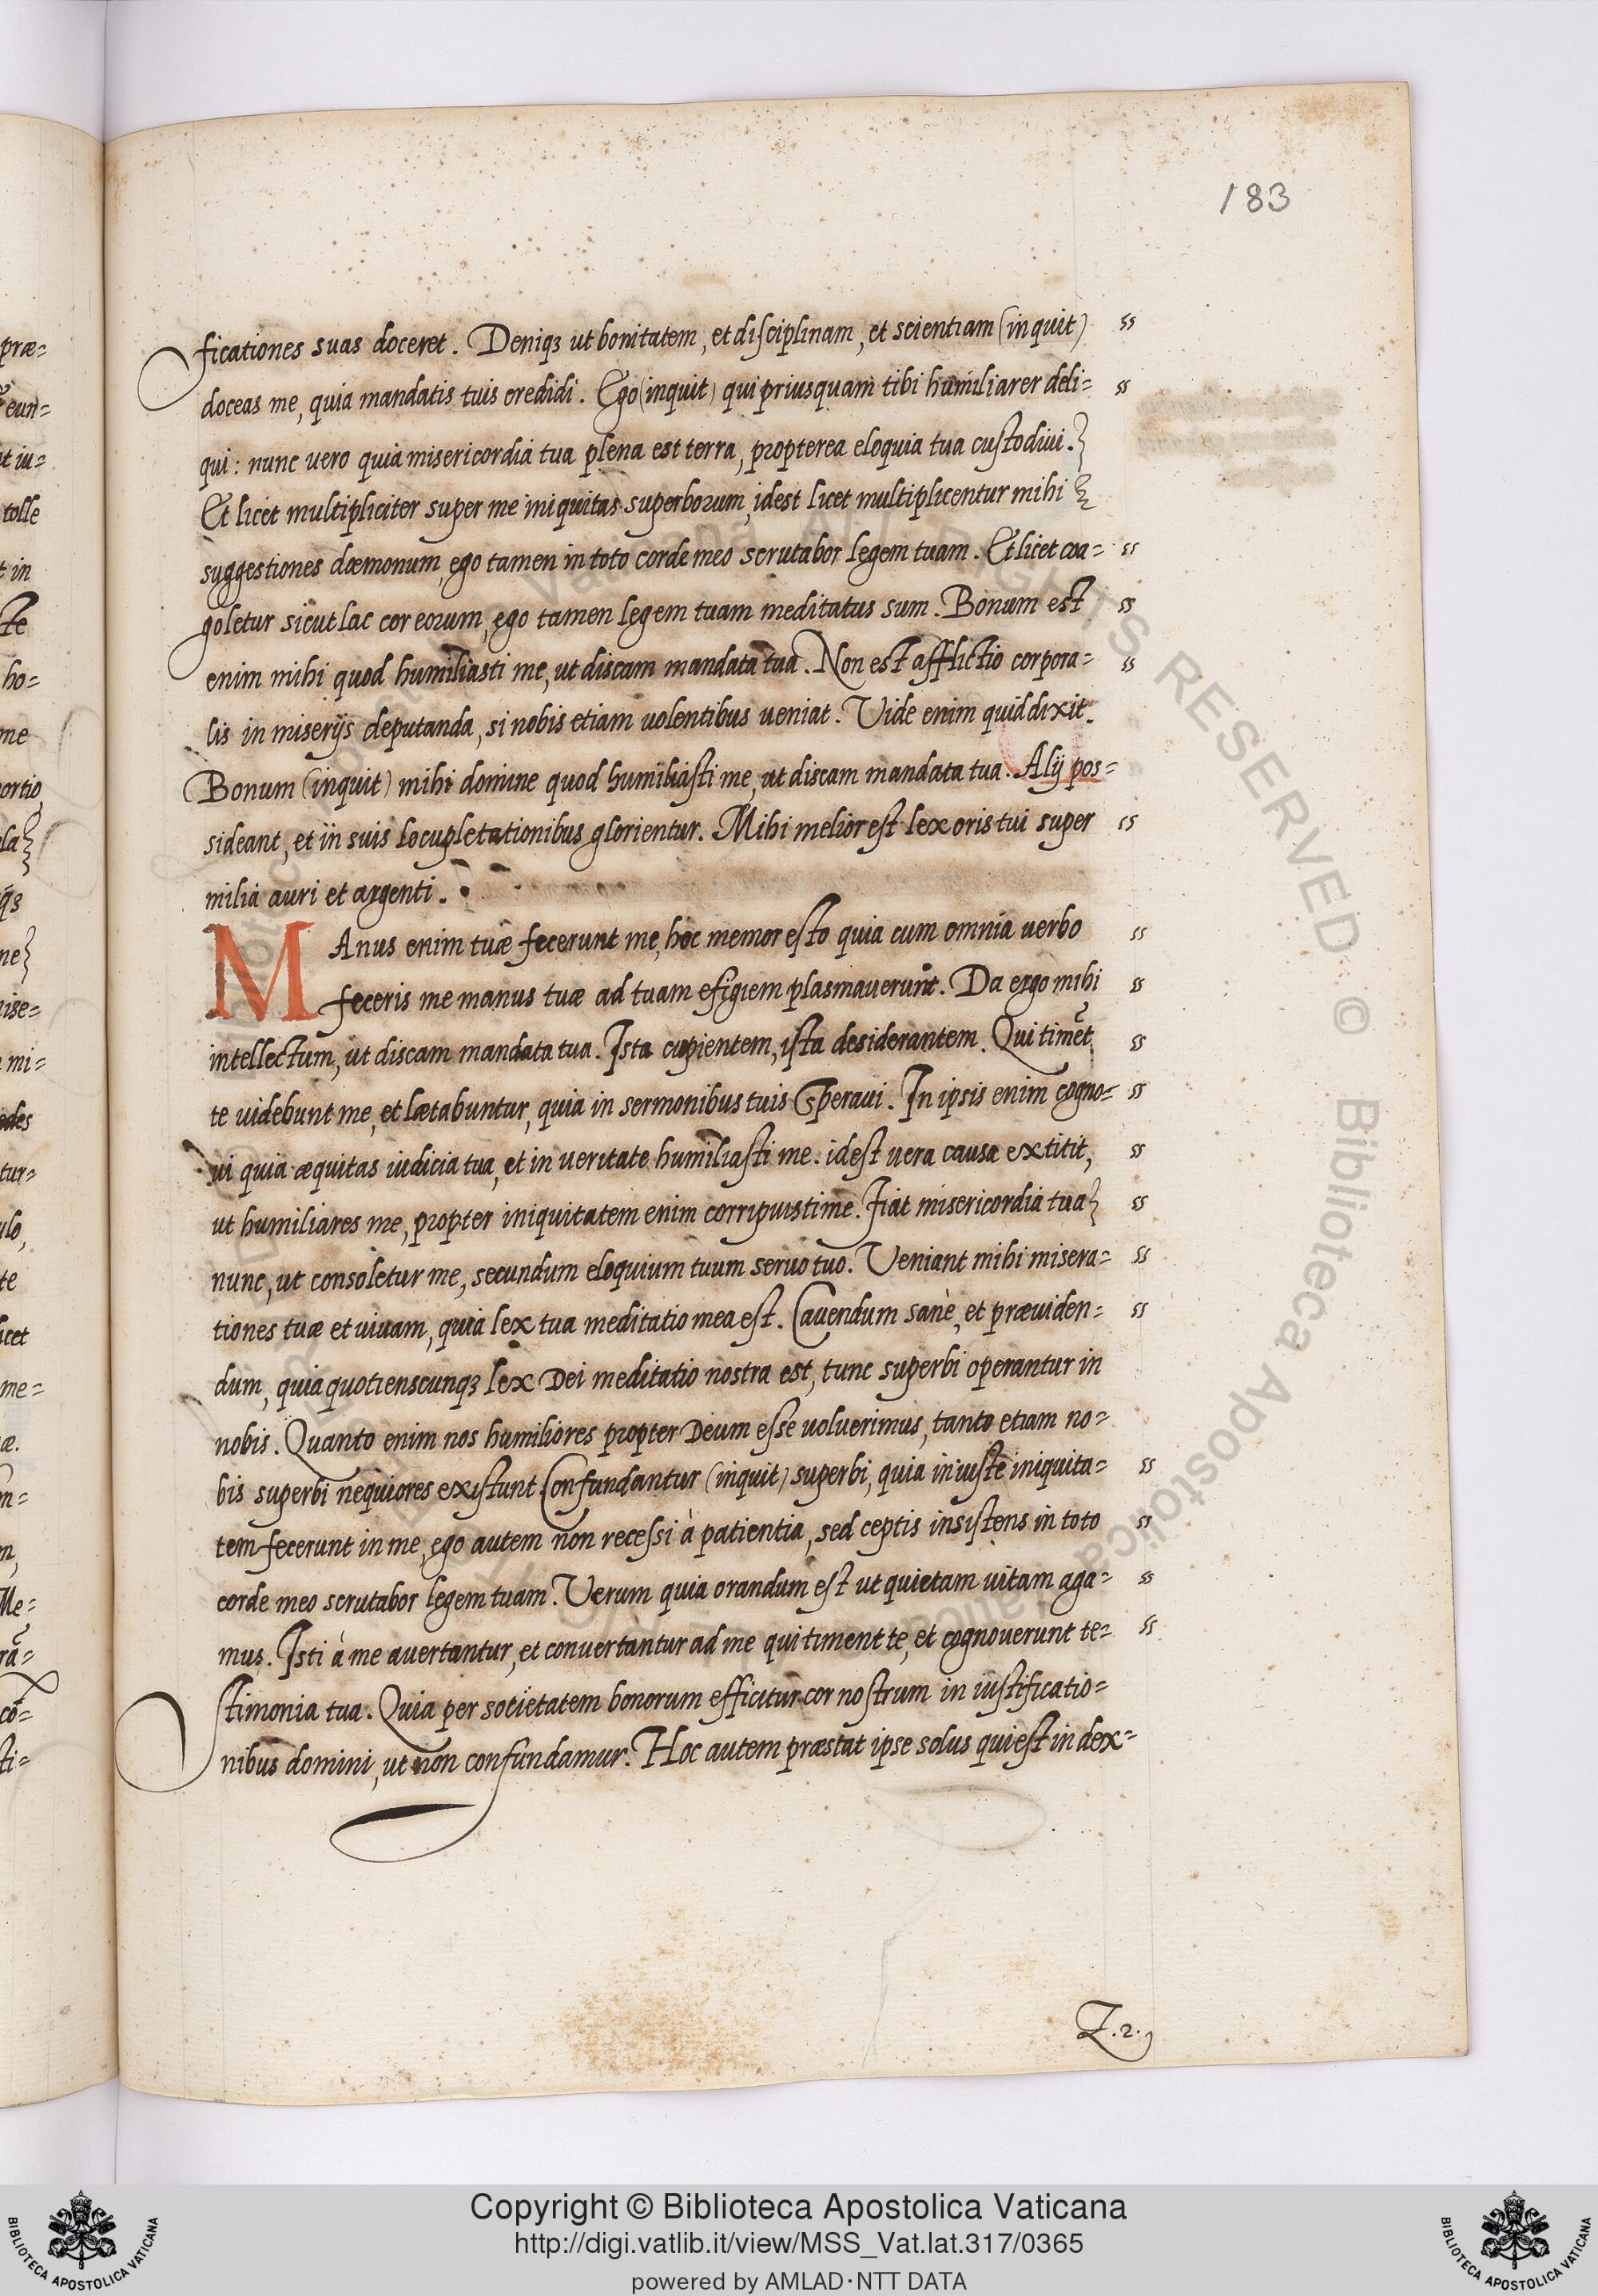 183
ficationes suas doceret. Deniqȝ ut bonitatem, et disciplinam, et scientiam (inquit)
doceas me, quia mandatis tuis credidi. Ego (inquit) qui priusquam tibi humiliarer deli=
qui: nunc uero quia misericordia tua plena est terra, propterea eloquia tua custodiui.
Et licet multipliciter super me iniquitas superborum, idest licet multiplicentur mihi
suggestiones dæmonum, ego tamen in toto corde meo scrutabor legem tuam. Et licet coa=
goletur sicut lac cor eorum, ego tamen legem tuam meditatus sum. Bonum est
enim mihi quod humiliasti me, ut discam mandata tua. Non est afflictio corpora=
lis in miserijs deputanda, si nobis etiam uolentibus ueniat. Vide enim quid dixit.
Bonum (inquit) mihi domine quod humiliasti me, ut discam mandata tua. Alij pos=
sideant, et in suis locupletationibus glorientur. Mihi melior est lex oris tui super
milia auri et argenti.
MAnus enim tuæ fecerunt me, hoc memor esto quia cum omnia uerbo
feceris me manus tuæ ad tuam efigiem plasmauerunt. Da ergo mihi
intellectum, ut discam mandata tua. Ista cupientem, ista desiderantem. Qui timẽt
te uidebunt me, et lætabuntur, quia in sermonibus tuis Speraui. In ipsis enim cogno=
ui quia æquitas iudicia tua, et in ueritate humiliasti me. idest uera causa extitit,
ut humiliares me, propter iniquitatem enim corripuisti me. Fiat misericordia tua
nunc, ut consoletur me, secundum eloquium tuum seruo tuo. Veniant mihi misera=
tiones tuæ et uiuam, quia lex tua meditatio mea est. Cauendum sanè, et præuiden=
dum, quia quotienscunqȝ lex Dei meditatio nostra est, tunc superbi operantur in
nobis. Quanto enim nos humiliores propter Deum esse uoluerimus, tanto etiam no=
bis superbi nequiores existunt Confundantur (inquit) superbi, quia iniuste iniquita=
tem fecerunt in me, ego autem non recessi à patientia, sed ceptis insistens in toto
corde meo scrutabor legem tuam. Verum quia orandum est ut quietam uitam aga=
mus. Isti à me auertantur, et conuertantur ad me qui timent te, et cognouerunt te=
stimonia tua. Quia per societatem bonorum efficitur cor nostrum in iustificatio=
nibus domini, ut non confundamur. Hoc autem præstat ipse solus qui est in dex=
Z.2.
Copyright © Biblioteca Apostolica Vaticana
http://digi.vatlib.it/view/MSS_Vat.lat.317/0365
powered by AMLAD·NTT DATA
BIBLIOTECA APOSTOLICA VATICANA
BIBLIOTECA APOSTOLICA VATICANA